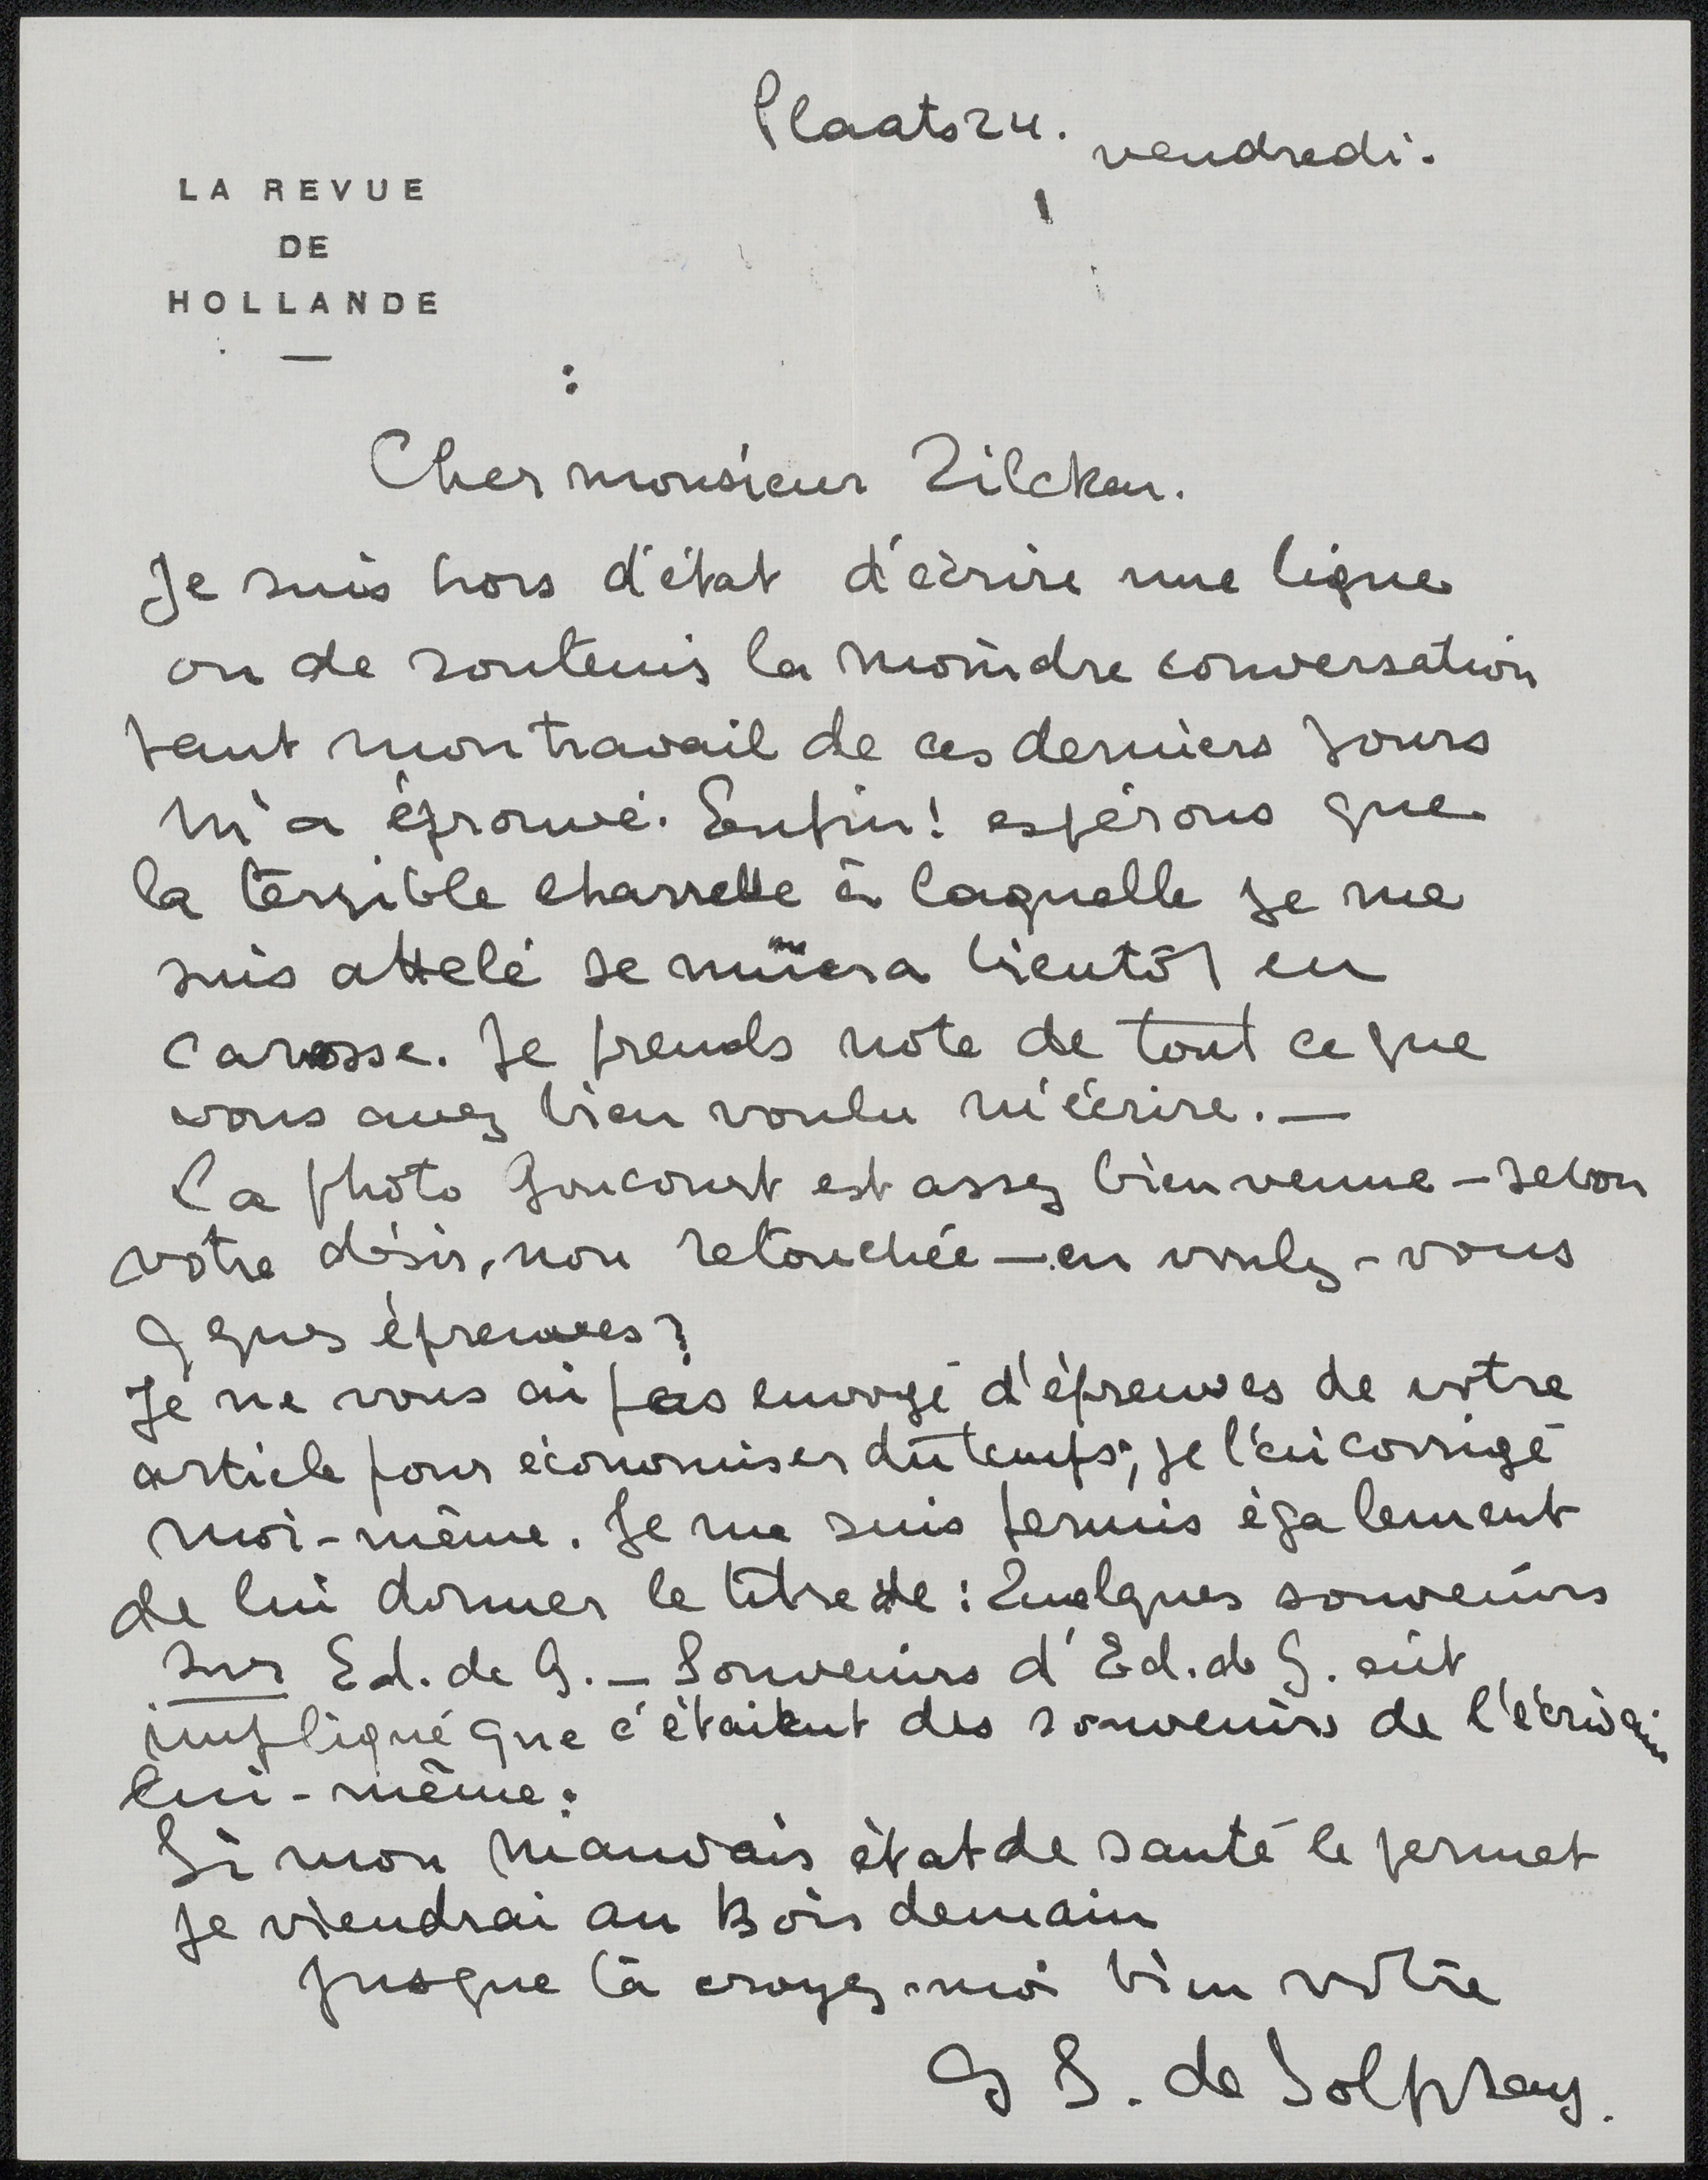 Plaats 24. vendredi.
LA REVUE
DE
HOLLANDE
Cher monsieur Zilcken.
Je suis hors d'état d'écrire une ligne
ou de soutenir la moindre conversation
tant mon travail de ces derniers jours
m'a éprouvé. Enfin! espérons que
la terrible charrette à laquelle je me
suis attelé se muera bientôt en
carosse. Je prends note de tout ce que
vous avez bien voulu m'écrire. —
La photo Goncourt est assez bien venue — selon
votre désir, non retouchée — en voulez-vous
qques épreuves?
Je ne vous ai pas envoyé d'épreuves de votre
article pour économiser du temps; je l'ai corrigé
moi-même. Je me suis permis également
de lui donner le titre de: Quelques souvenirs
sur Ed. de G. — Souvenirs d'Ed. de G. eût
impliqué que c'étaient des souvenirs de l'écrivain
lui-même.
Si mon mauvais état de santé le permet
je viendrai au Bois demain
jusque là croyez-moi bien vôtre
G S. de Solpray.